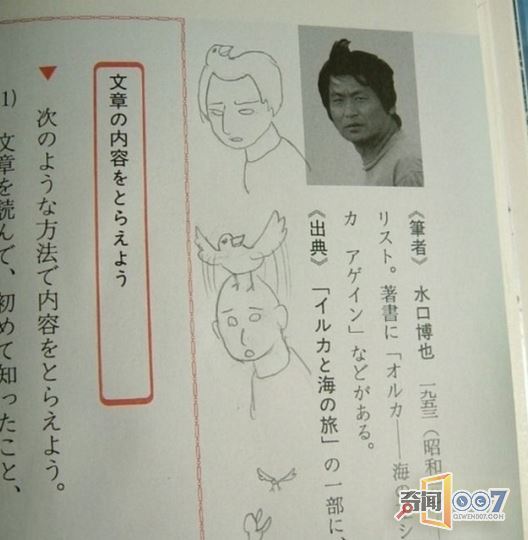 《筆者》 水口博也 一九五三(昭和
リスト。著書に「オルカ——海の
カ アゲイン」などがある。
《出典》 「イルカと海の旅」の一部に、
文章の内容をとらえよう
▼ 次のような方法で内容をとらえよう。
1) 文章を読んで、初めて知ったこと、
奇闻007
QIWEN007.COM